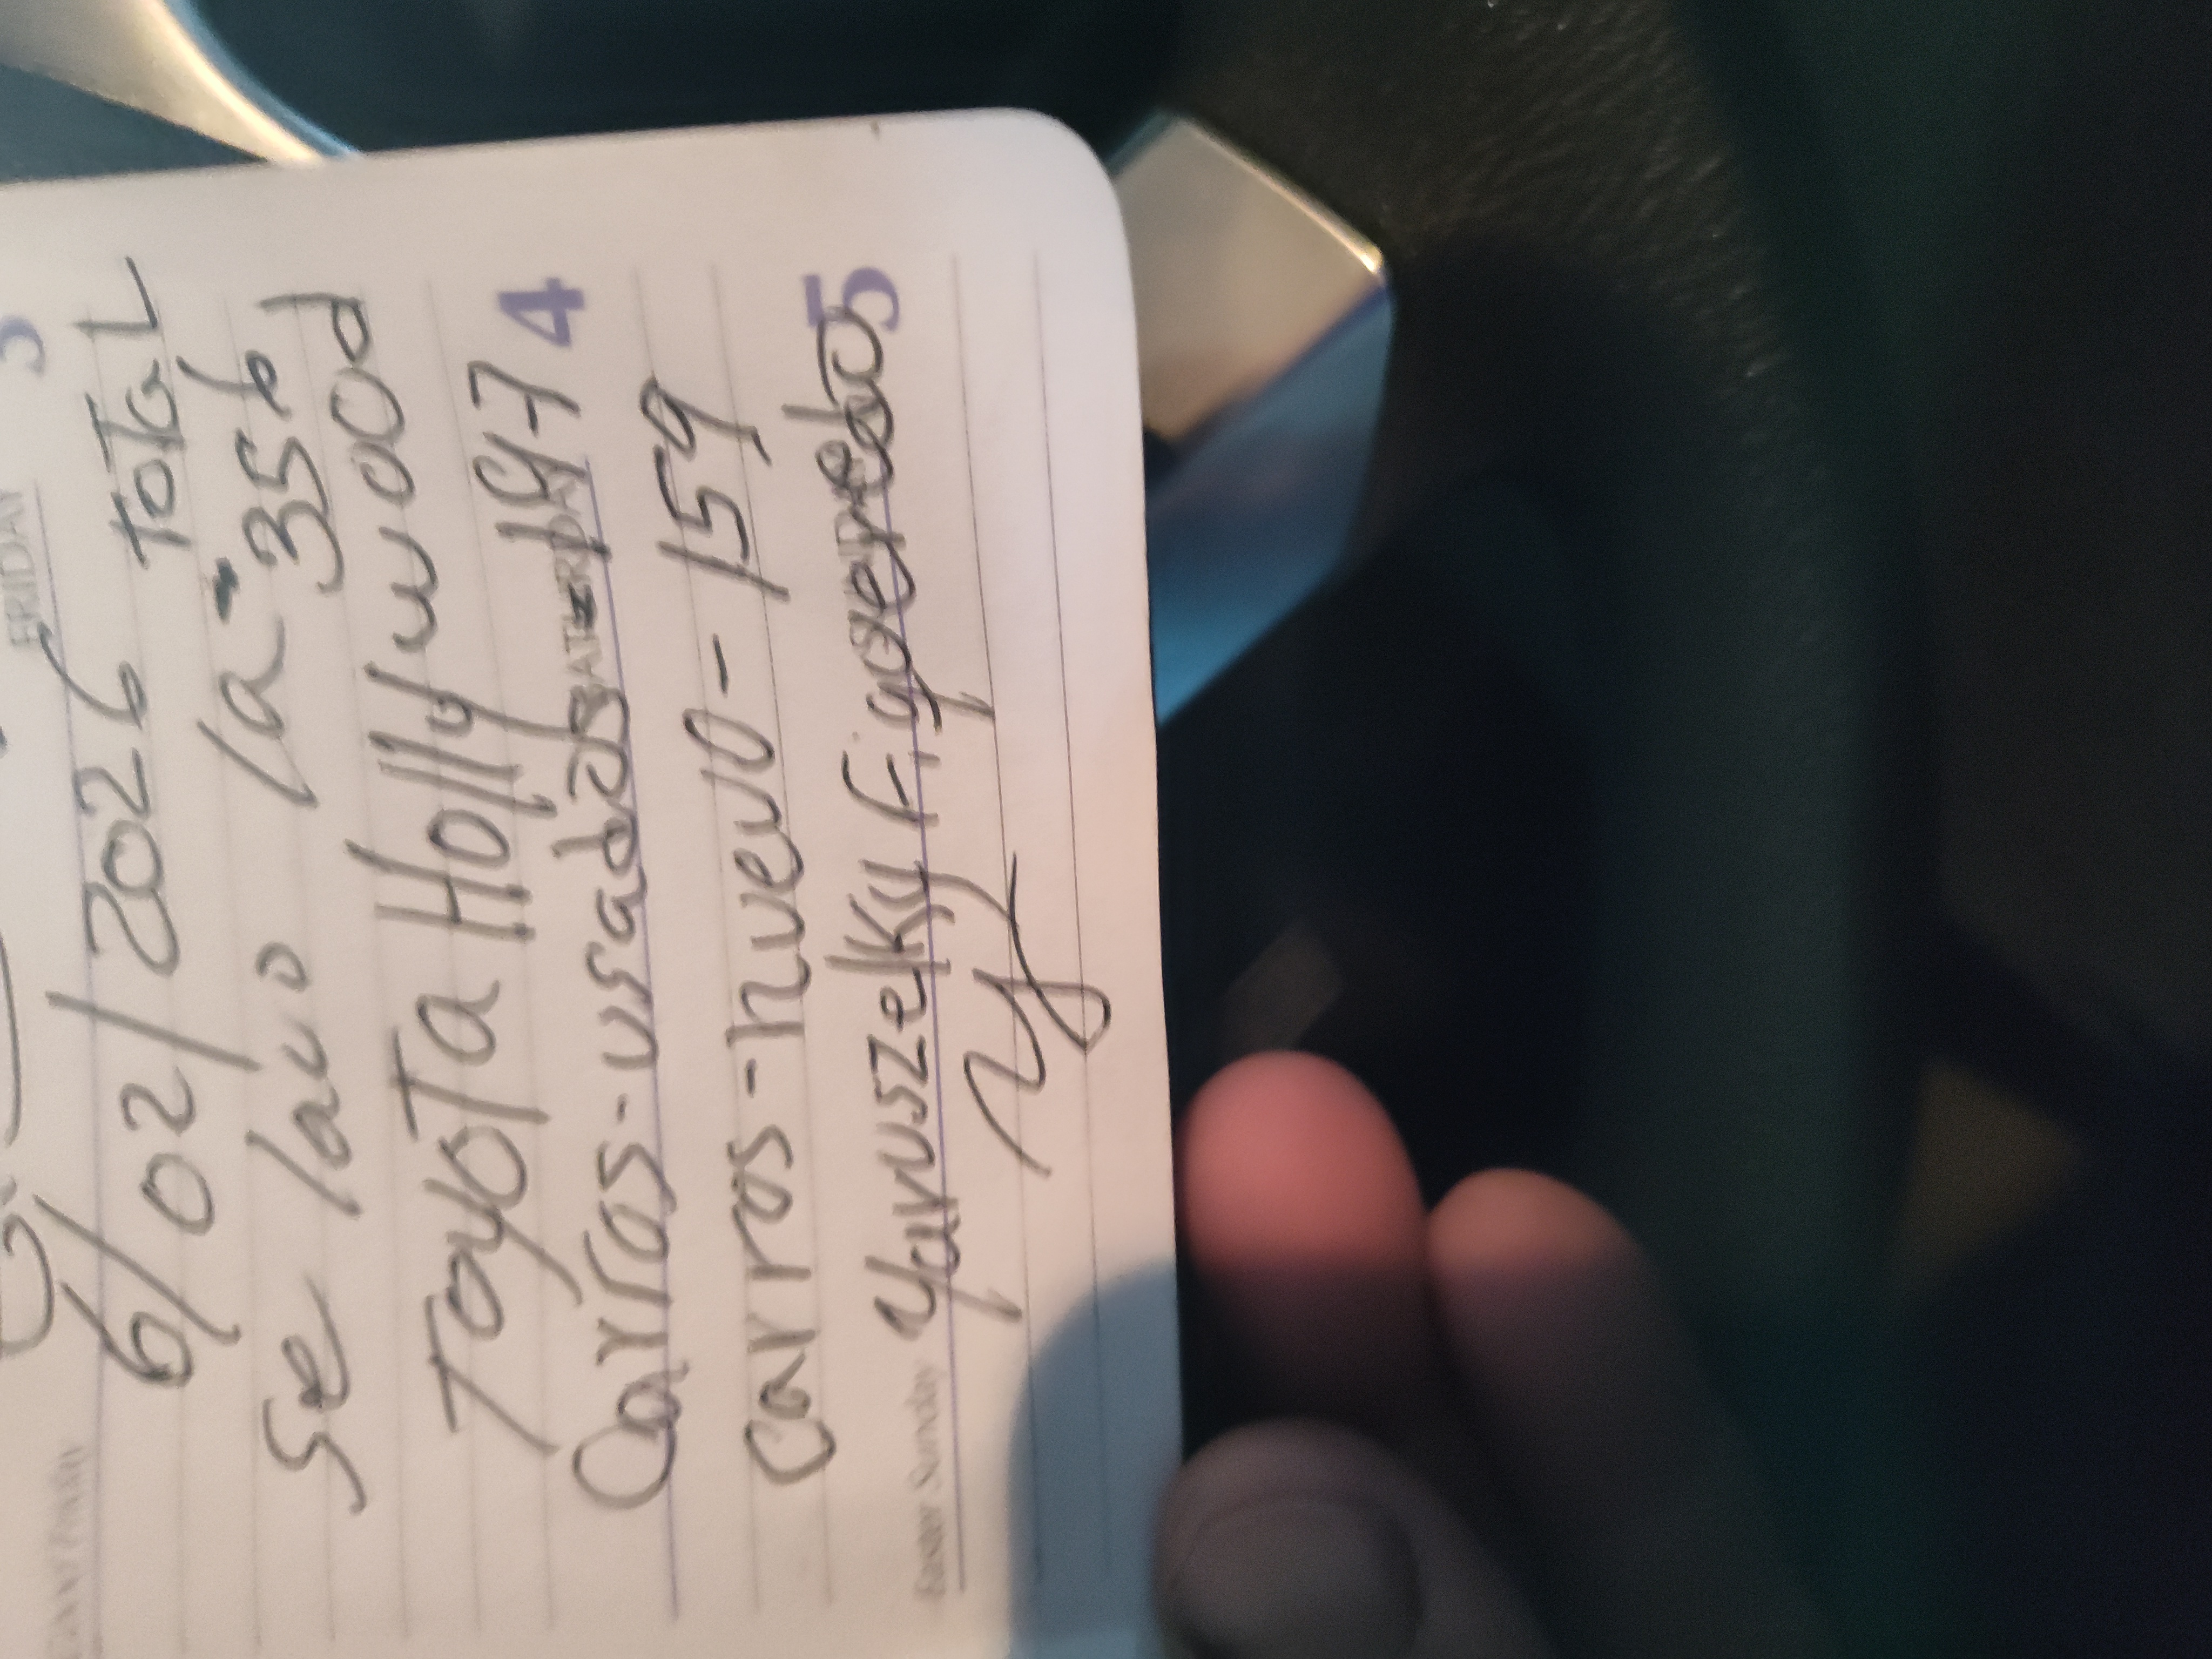 FRIDAY 3
6/02/2026 Total
se lavo la - 356
Toyota Hollywood
SATURDAY 4
Carros - usados - 197
Carros - nuevo - 159
Easter Sunday SUNDAY 5
Yaruszelky Figueredo